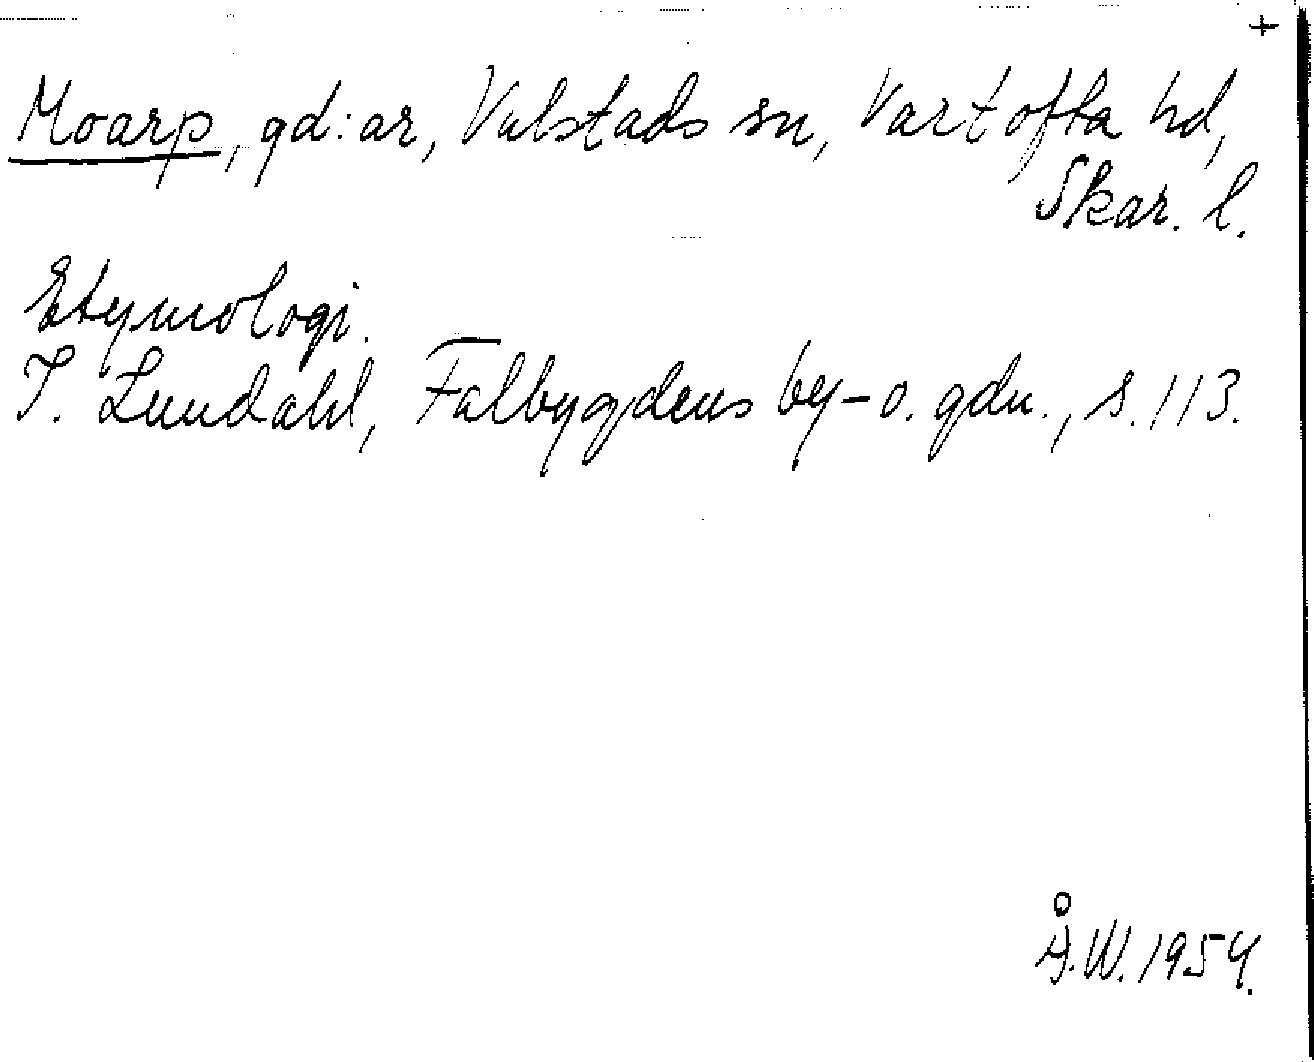 +
Moarp, gd:ar, Vilstads sn, Vartofta hd,
Skar. l.
Etymologi.
I. Lundahl, Falbygdens by- o. gdn., s. 113.
Å.W. 1954.